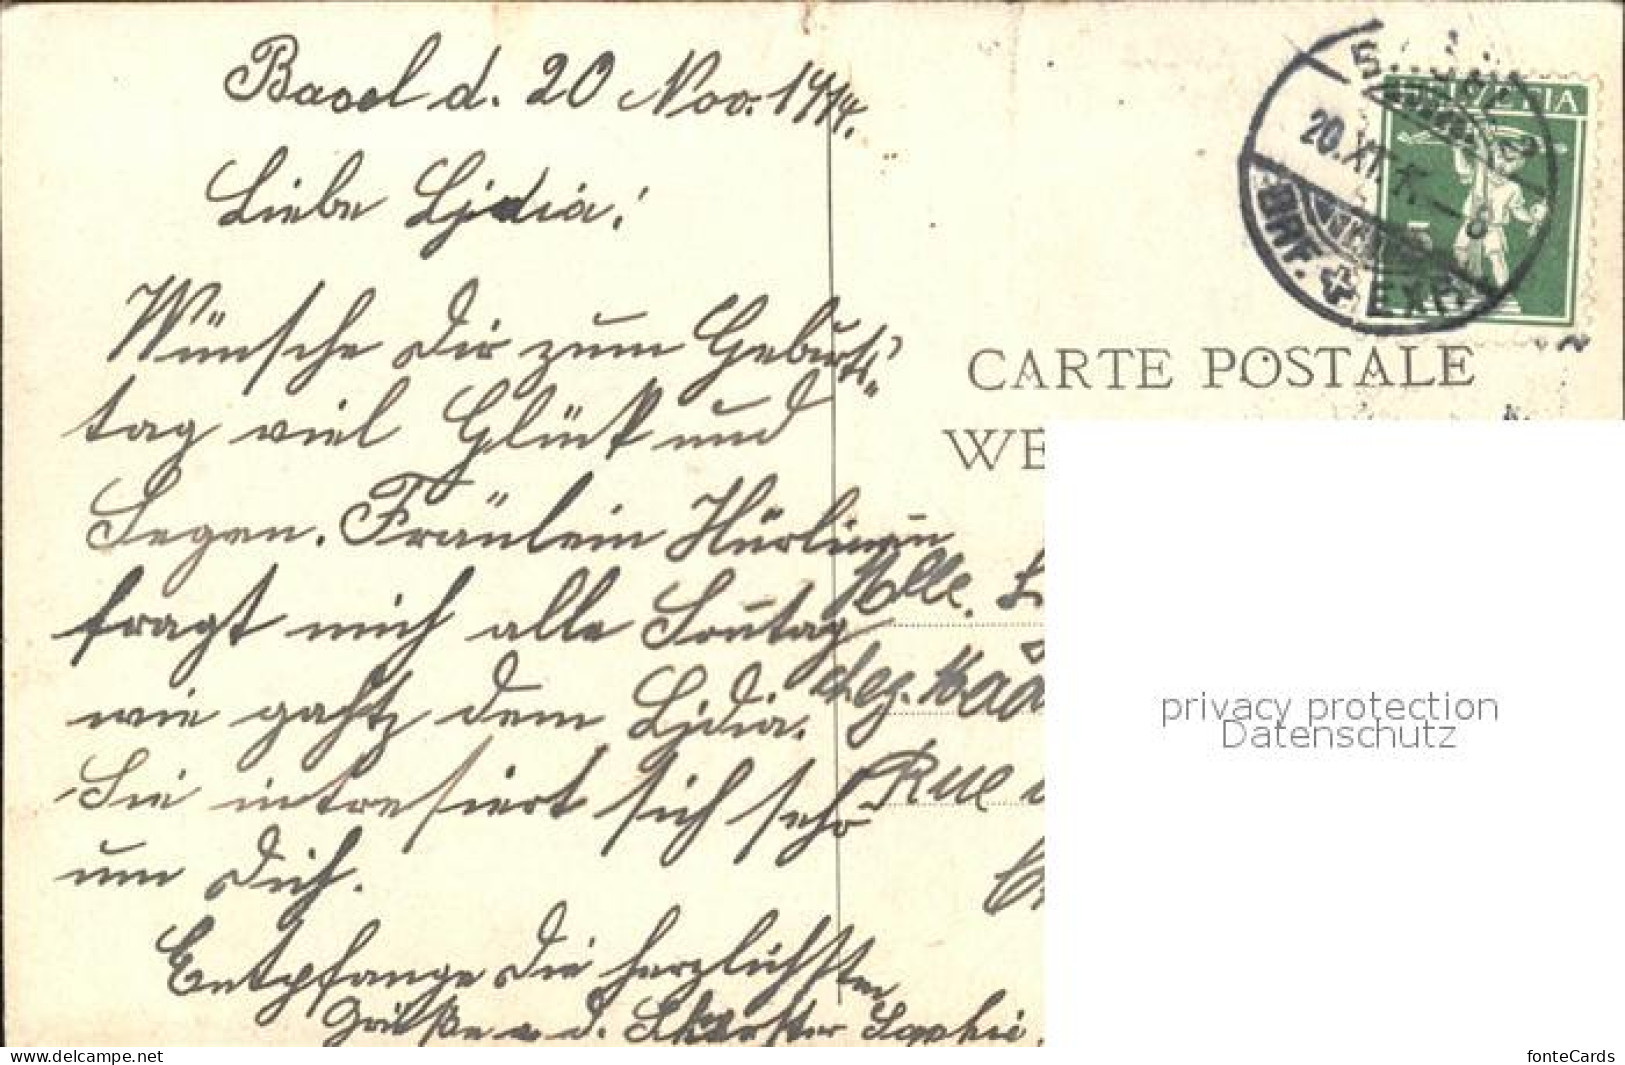 Basel d. 20 Nov. 1914.
Liebe Lydia!
Wünsche Dir zum Geburts-
tag viel Glück und
Segen. Fräulein Hürlimann
fragt mich alle Sontag
wie gehts dem Lydia.
Sie intresiert sich sehr
um Dich.
Entpfange die herzlichsten
Grüße v. d. Schwester Sophie.
HELVETIA
20.XI.
BRF. EXP.
CARTE POSTALE
WE
Mlle. L
Rue
privacy protection
Datenschutz
www.delcampe.net
fonteCards